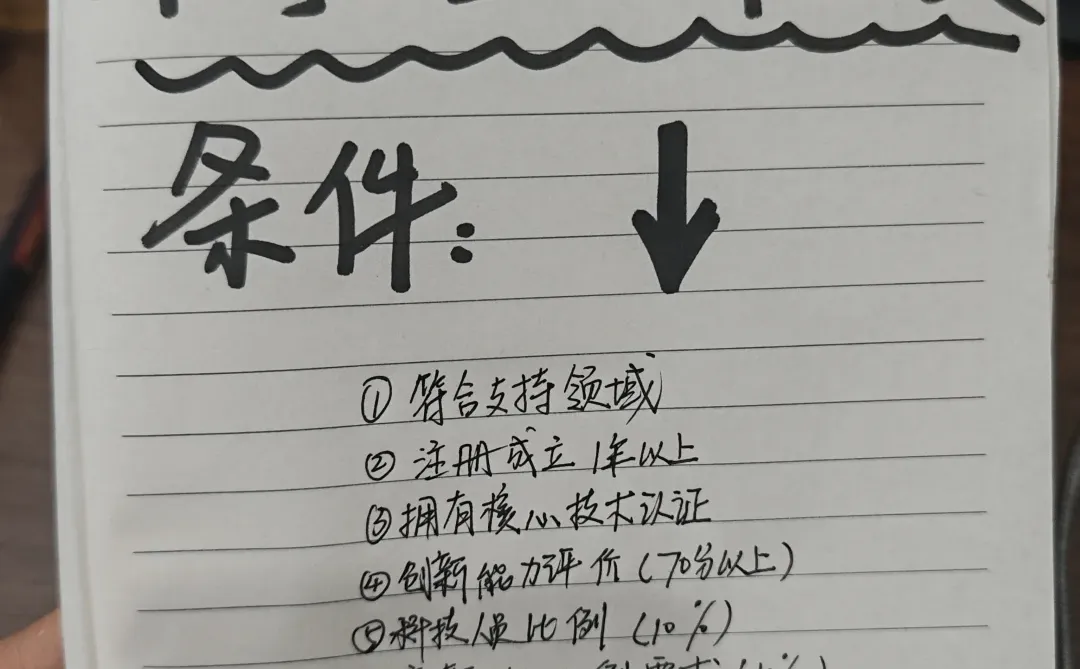 条件:
① 符合支持领域
② 注册成立1年以上
③ 拥有核心技术认证
④ 创新能力评价(70分以上)
⑤ 科技人员比例(10%)